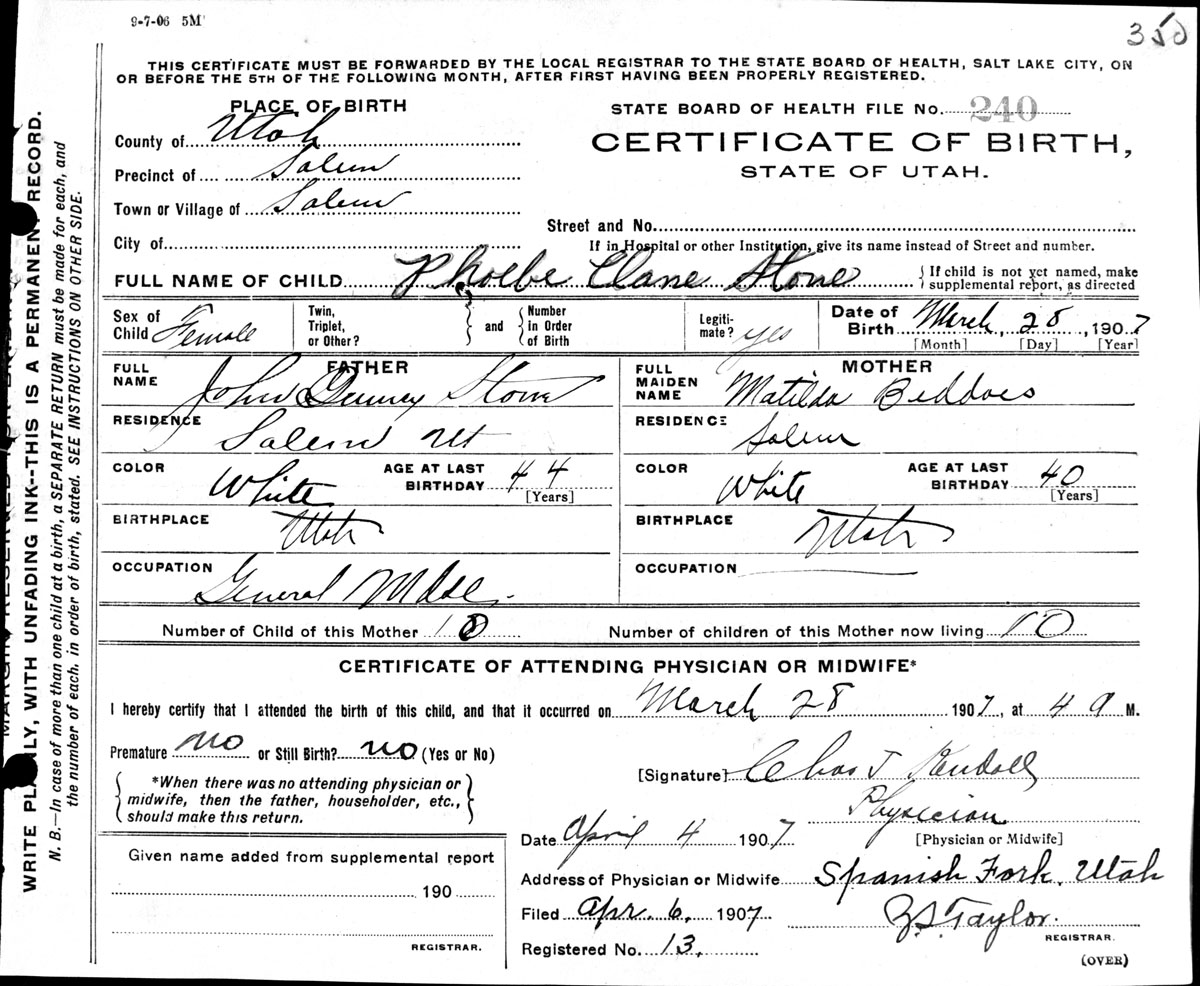 9-7-06 5M
350
THIS CERTIFICATE MUST BE FORWARDED BY THE LOCAL REGISTRAR TO THE STATE BOARD OF HEALTH, SALT LAKE CITY, ON
OR BEFORE THE 5TH OF THE FOLLOWING MONTH, AFTER FIRST HAVING BEEN PROPERLY REGISTERED.
PLACE OF BIRTH
STATE BOARD OF HEALTH FILE No. 240
County of Utah
CERTIFICATE OF BIRTH,
Precinct of Salem
STATE OF UTAH.
Town or Village of Salem
Street and No.
City of
If in Hospital or other Institution, give its name instead of Street and number.
FULL NAME OF CHILD Phoebe Clane Stone
If child is not yet named, make
supplemental report, as directed
Sex of Child Female
Twin, Triplet, or Other? and Number in Order of Birth
Legitimate? yes
Date of Birth March, 28, 1907
[Month] [Day] [Year]
FATHER
MOTHER
FULL NAME John Stone
FULL MAIDEN NAME Matilda Beddoes
RESIDENCE Salem Ut
RESIDENCE Salem
COLOR White AGE AT LAST BIRTHDAY 44 [Years]
COLOR White AGE AT LAST BIRTHDAY 40 [Years]
BIRTHPLACE Utah
BIRTHPLACE Utah
OCCUPATION General Mdse.
OCCUPATION
Number of Child of this Mother 10
Number of children of this Mother now living 10
CERTIFICATE OF ATTENDING PHYSICIAN OR MIDWIFE*
I hereby certify that I attended the birth of this child, and that it occurred on March 28 1907, at 4 a M.
Premature no or Still Birth? no (Yes or No)
*When there was no attending physician or
midwife, then the father, householder, etc.,
should make this return.
[Signature] Chas J Kendall
Physician
[Physician or Midwife]
Date April 4 1907
Given name added from supplemental report
190
REGISTRAR.
Address of Physician or Midwife Spanish Fork, Utah
Filed Apr. 6, 1907 Taylor.
REGISTRAR.
Registered No. 13.
(OVER)
WRITE PLAINLY, WITH UNFADING INK--THIS IS A PERMANENT RECORD.
N. B.—In case of more than one child at a birth, a SEPARATE RETURN must be made for each, and
the number of each, in order of birth, stated. SEE INSTRUCTIONS ON OTHER SIDE.